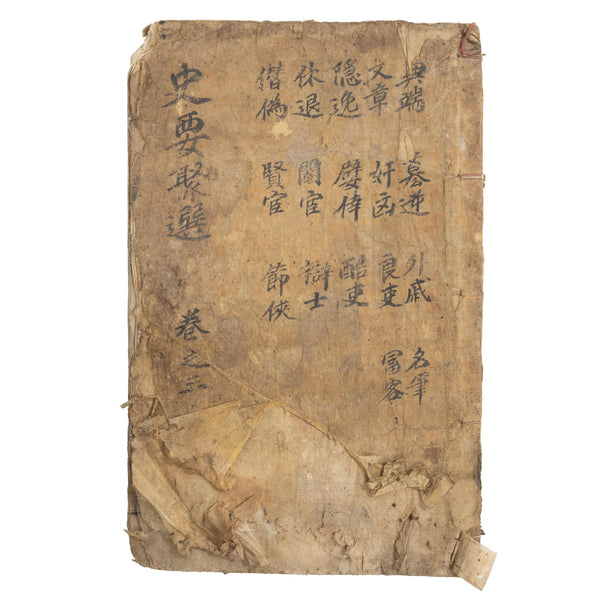 異端 篡逆 外戚 名筆
文章 奸凶 良吏 富客
隱逸 嬖倖 酷吏
休退 閹宦 辯士
僭偽 賢宦 節俠
史要聚選 卷之